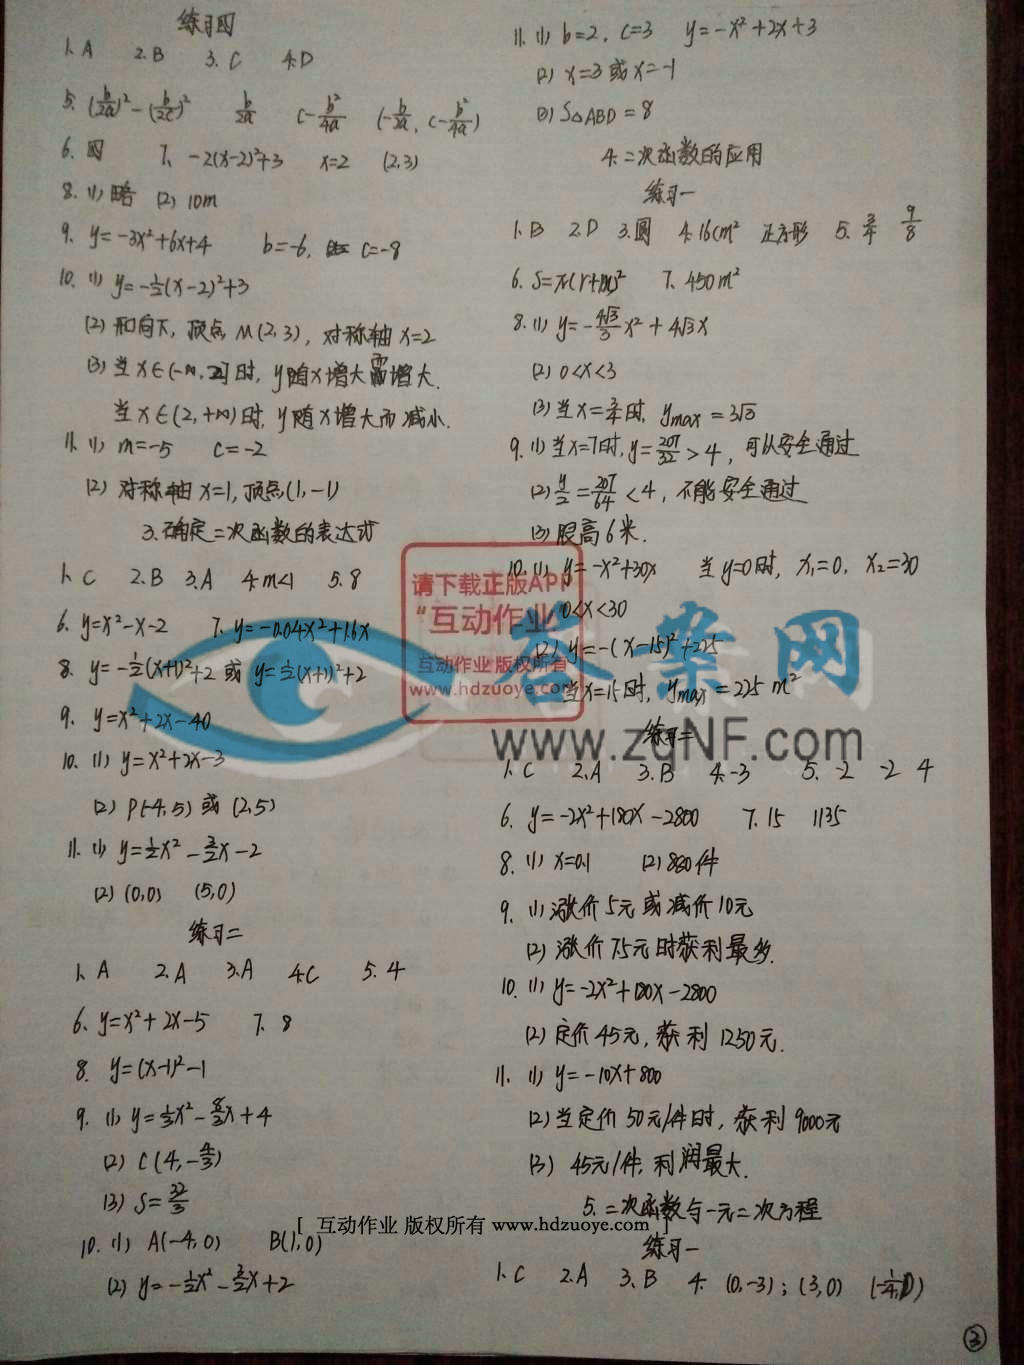 练习四
1. A 2. B 3. C 4. D
5. (b/2a)² - (b/2c)² b/2a c - b²/4a (-b/2a, c - b²/4a)
6. 四 7. -2(x-2)²+3 x=2 (2,3)
8. (1) 略 (2) 10m
9. y=-3x²+6x+4 b=-6, c=-8
10. (1) y=-1/2(x-2)²+3
(2) 开向下, 顶点 M(2,3), 对称轴 x=2
(3) 当 x∈(-∞, 2]时, y随x增大而增大.
当 x∈(2,+∞)时, y随x增大而减小.
11. (1) m=-5 c=-2
(2) 对称轴 x=1, 顶点(1,-1)
3. 确定二次函数的表达式
1. C 2. B 3. A 4. m<1 5. 8
6. y=x²-x-2 7. y=-0.04x²+1.6x
8. y=-1/2(x+1)²+2 或 y=1/2(x+1)²+2
9. y=x²+2x-40
10. (1) y=x²+2x-3
(2) P(-4,5) 或 (2,5)
11. (1) y=1/2x²-3/2x-2
(2) (0,0) (5,0)
练习二
1. A 2. A 3. A 4. C 5. 4
6. y=x²+2x-5 7. 8
8. y=(x-1)²-1
9. (1) y=1/3x²-8/3x+4
(2) C(4,-4/3)
(3) S=32/3
10. (1) A(-4,0) B(1,0)
(2) y=-1/2x²-3/2x+2
11. (1) b=2, c=3 y=-x²+2x+3
(2) x=3 或 x=-1
(3) S△ABD=8
4. 二次函数的应用
练习一
1. B 2. D 3. 圆 4. 16cm² 正方形 5. 3/4 9/8
6. S=π(r+m)² 7. 450m²
8. (1) y=-4√3/3x²+4√3x
(2) 0<x<3
(3) 当x=3/2时, ymax=3√3
9. (1) 当x=7时, y=207/32>4, 可以安全通过
(2) y/2=207/64<4, 不能安全通过
(3) 限高6米.
10. (1) y=-x²+30x 当y=0时, x₁=0, x₂=30
0<x<30
(2) y=-(x-15)²+225
当x=15时, ymax=225 m²
练习二
1. C 2. A 3. B 4. -3 5. 2 -2 4
6. y=-2x²+180x-2800 7. 15 1135
8. (1) x=0.1 (2) 880件
9. (1) 涨价5元或减价10元
(2) 涨价7.5元时获利最多.
10. (1) y=-2x²+180x-2800
(2) 定价45元, 获利1250元.
11. (1) y=-10x+800
(2) 当定价50元/件时, 获利9000元
(3) 45元/件, 利润最大.
5. 二次函数与一元二次方程
练习一
1. C 2. A 3. B 4. (0,-3); (3,0) (-1/4,0)
②
请下载正版APP
“互动作业”
互动作业 版权所有
www.hdzuoye.com
答案网
www.zqNF.com
[ 互动作业 版权所有 www.hdzuoye.com ]